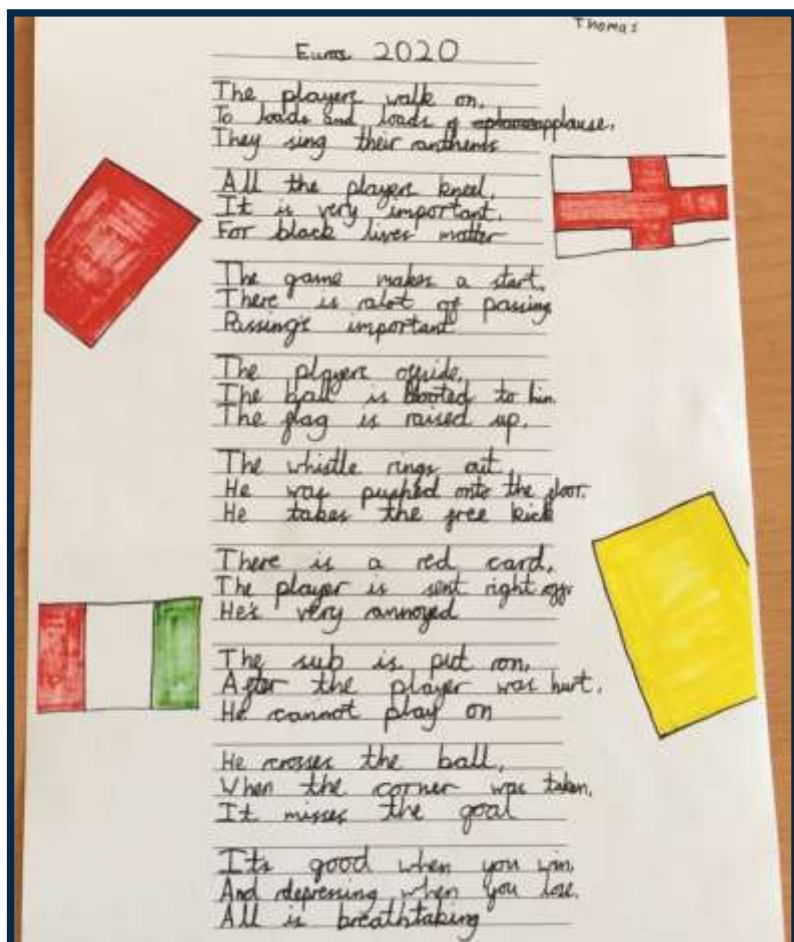 Thomas
Euros 2020
The players walk on,
To loads and loads of applause.
They sing their anthems
All the players kneel,
It is very important,
For black lives matter
The game makes a start,
There is alot of passing
Passing's important
The players offside,
The ball is booted to him.
The flag is raised up.
The whistle rings out
He was pushed onto the floor.
He takes the free kick
There is a red card,
The player is sent right off.
He's very annoyed
The sub is put on,
After the player was hurt.
He cannot play on
He crosses the ball,
When the corner was taken.
It misses the goal
It's good when you win
And depressing when you lose.
All is breathtaking